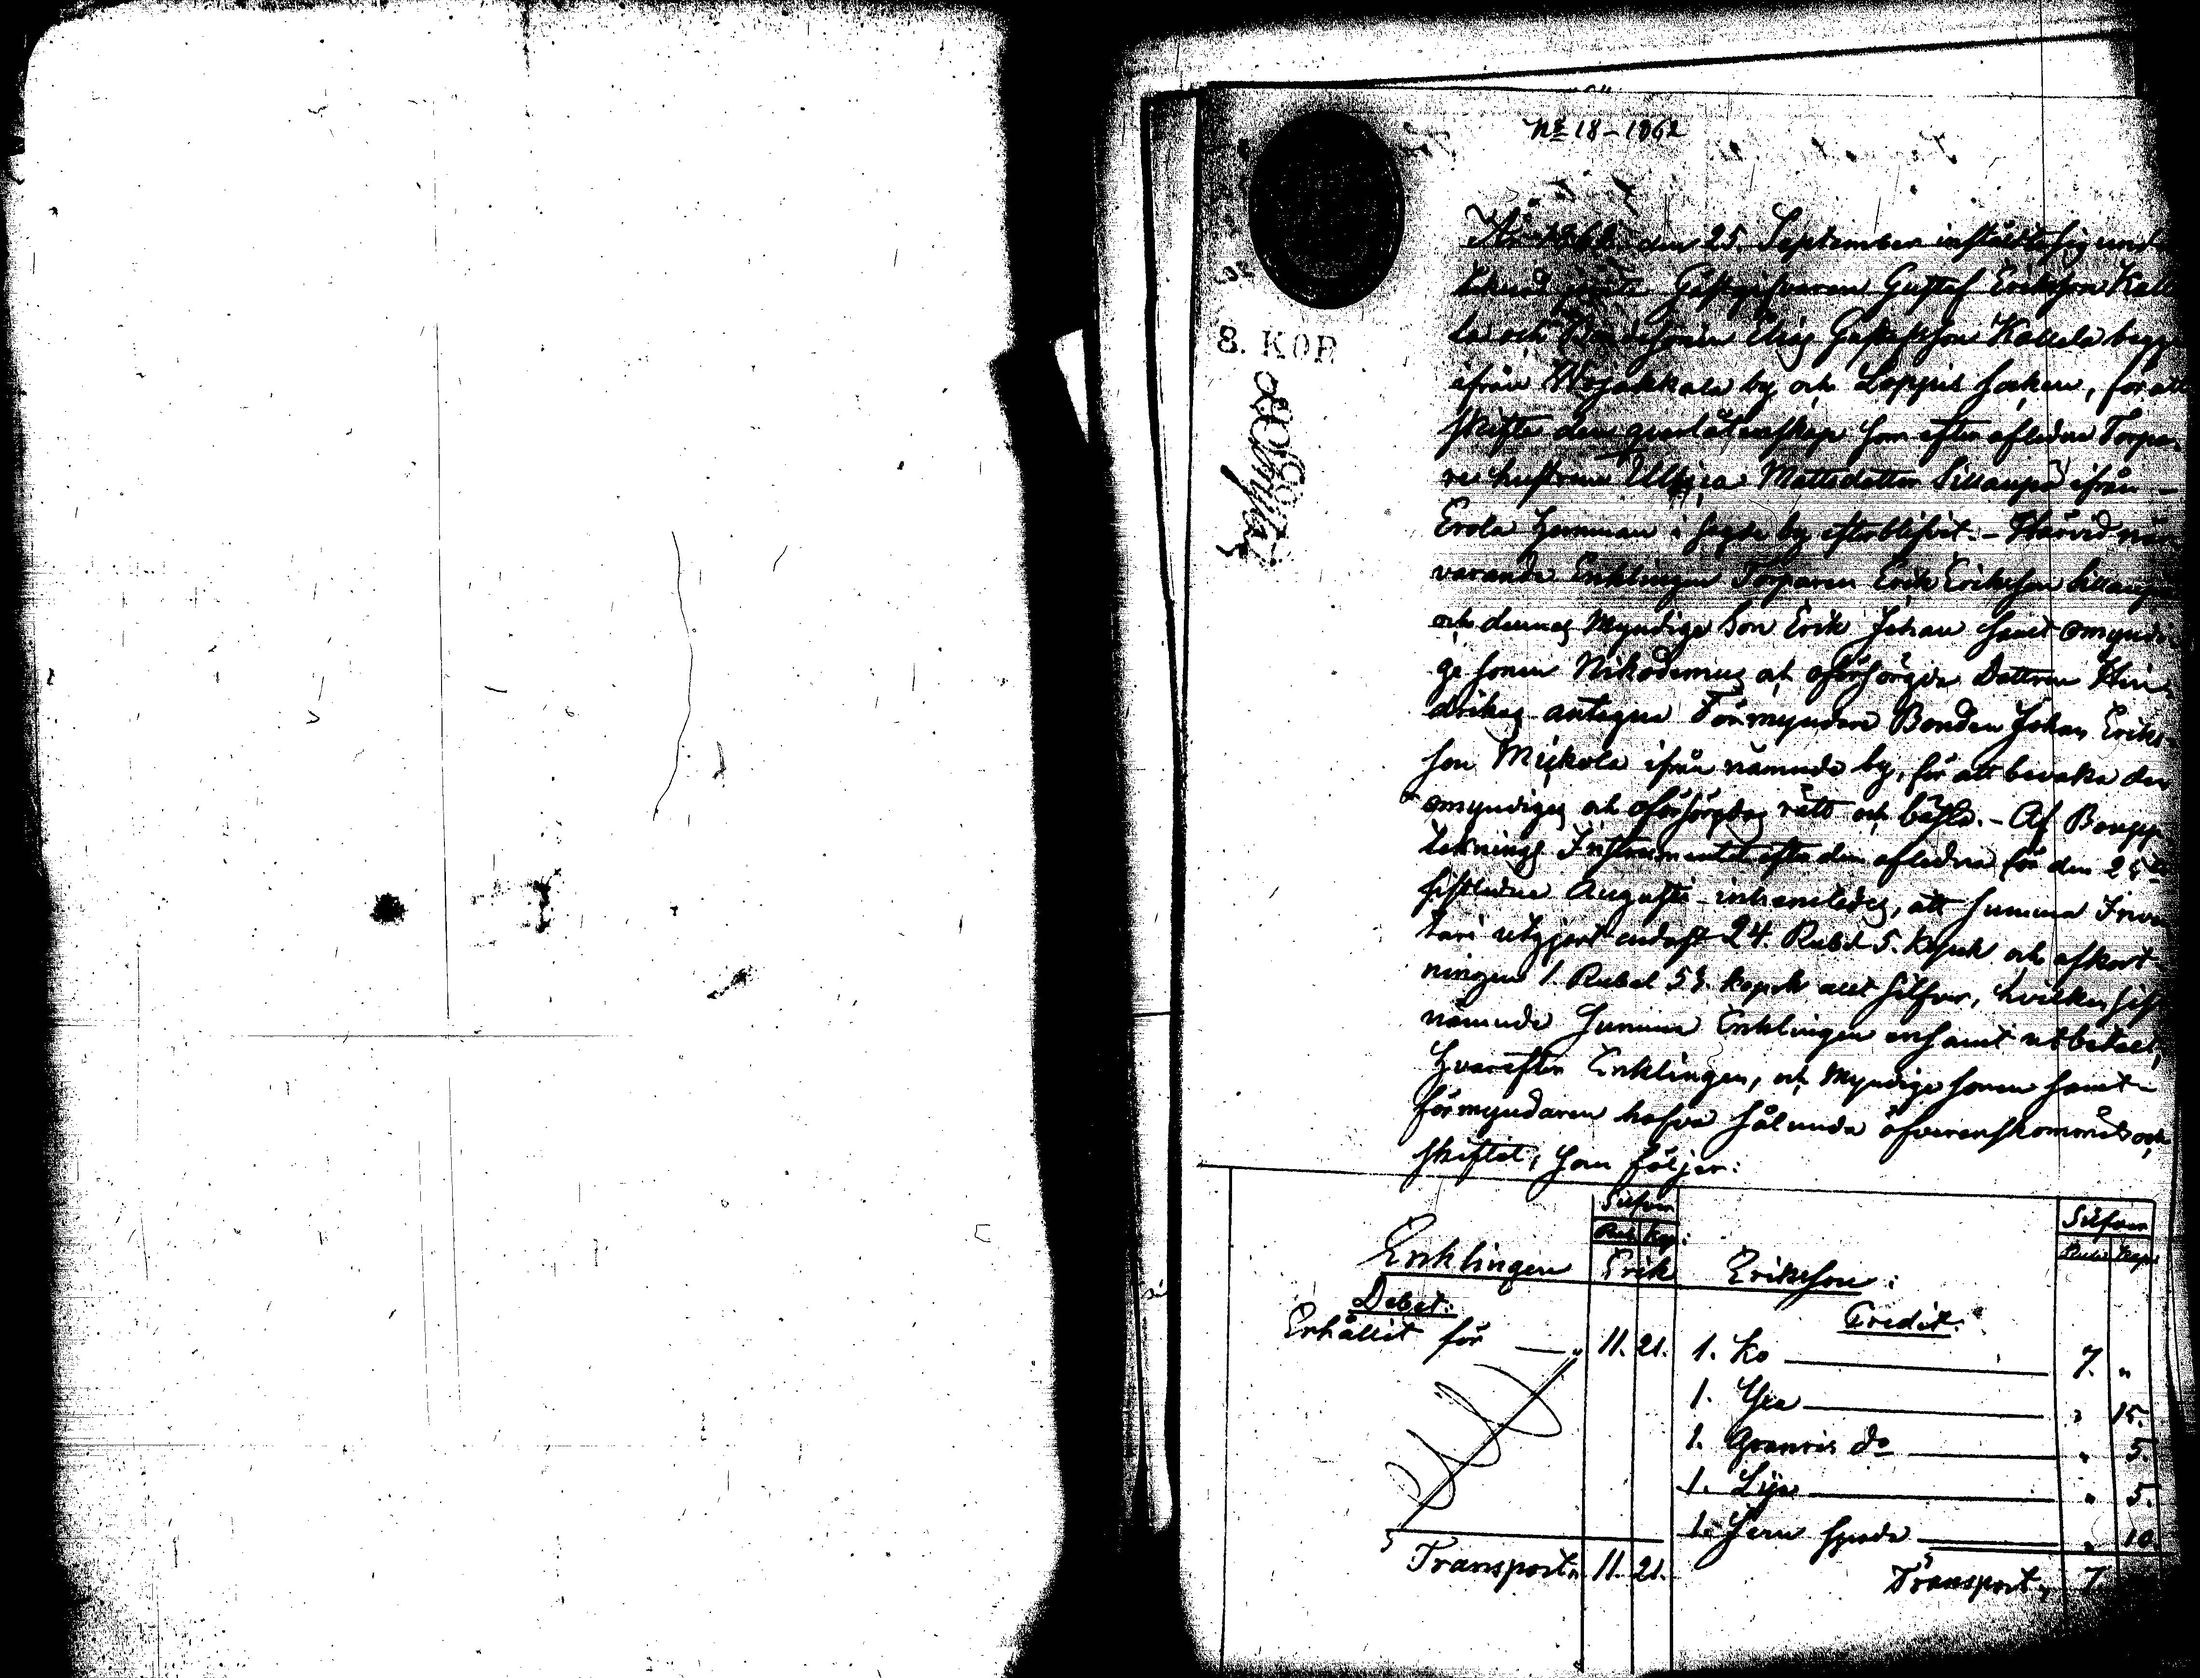 № 18 – 1862
År 1862 den 25. September inställte sig under
teknad jemte Gästgifvaren Gustaf Eriksson Kalle
la och Bondesonen Elias Gustafsson Kallela begge
ifrån Wojakkala by och Loppis socken, för att
skifta den qvarlåtenskap som efter aflidne Torpa
re hustrun Ulrica Mattsdotter Sillanpä ifrån
Erola hemman i sagde by efterblifvit. – Härvid när
varande Enklingen Torparen Erik Eriksson Sillanpä
och dennes Myndige Son Erik Johan samt omyndi
ge sonen Nikodemus och oförsörgda Dottren Hen
drikas antagna Förmyndare Bonden Johan Eriks
son Mickola ifrån nämnde by, för att bevaka de
omyndiges och oförsörgdas rätt och bästa. – Af Boupp
teknings Instrumentet efter den aflidna för den 25te
sistledne Augusti inhemtades, att summa Inven
tarii utgjort endast 24. Rubel 5. kopek och afkort
ningen 1. Rubel 53. kopek allt silfver, hvilken sist
nämnde summa Enklingen ensamt utbetalt,
hvarefter Enklingen, och Myndige sonen samt
förmyndaren hafva sålunda öfverenskommit och
skiftat, som följer:
Silfver Silfver
Rub. Kop: Rubel Kop:
Enklingen Erik Eriksson:
Debet: Credit:
Erhållit för 11. 21. 1. Ko 7. "
1. Yxa " 15.
1. Granris do " 5.
1. Lija " 5.
1. Jern spada " 10
Transport 11. 21. Transport 7
8. KOP